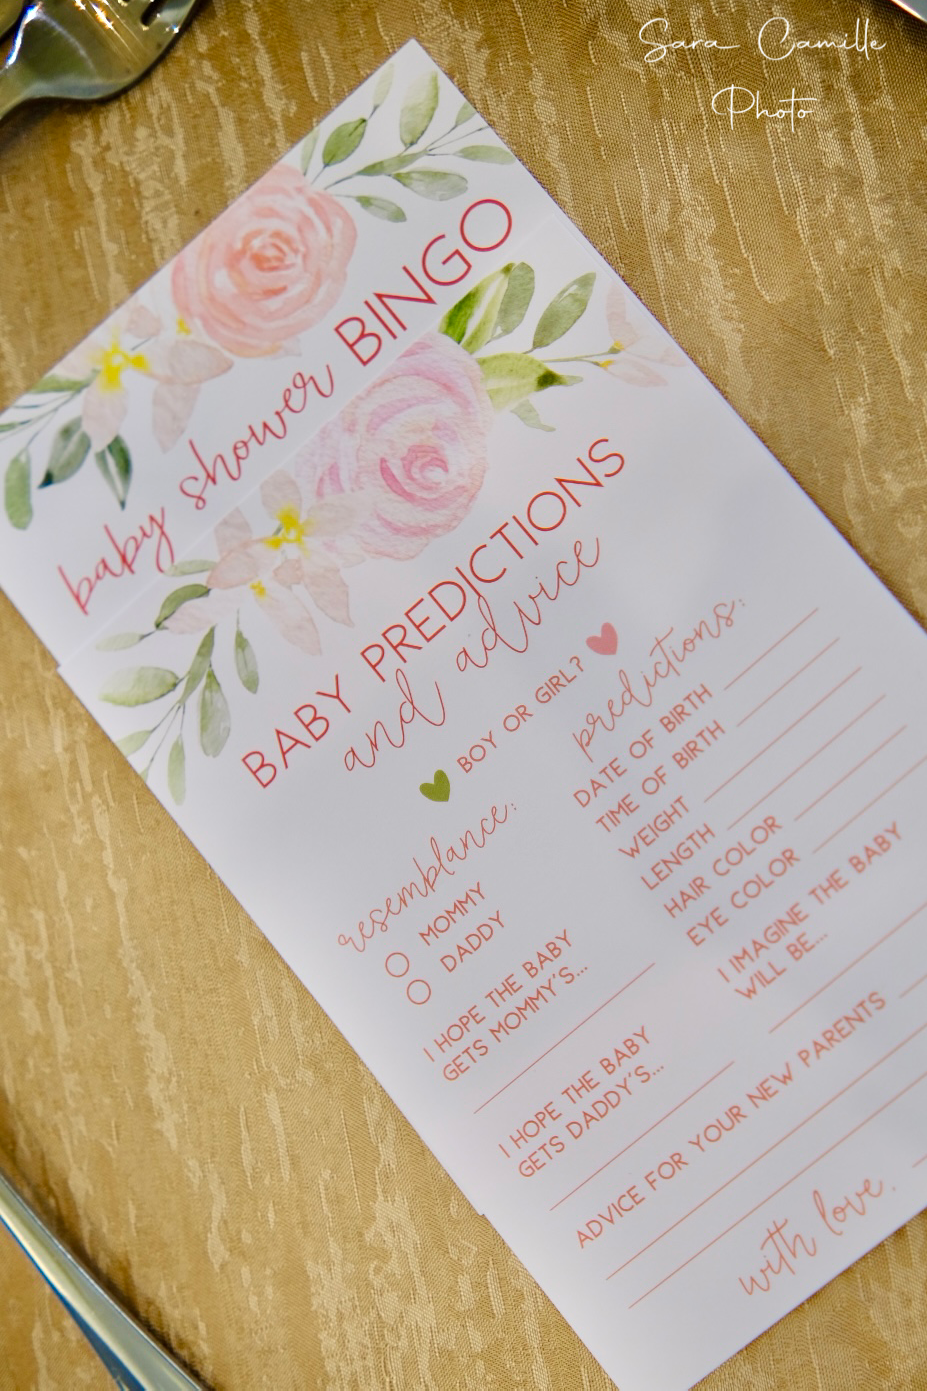 Sara Camille
Photo
baby shower BINGO
BABY PREDICTIONS
and advice
BOY OR GIRL?
resemblance:
MOMMY
DADDY
I HOPE THE BABY
GETS MOMMY'S...
I HOPE THE BABY
GETS DADDY'S...
predictions:
DATE OF BIRTH
TIME OF BIRTH
WEIGHT
LENGTH
HAIR COLOR
EYE COLOR
I IMAGINE THE BABY
WILL BE....
ADVICE FOR YOUR NEW PARENTS
with love,